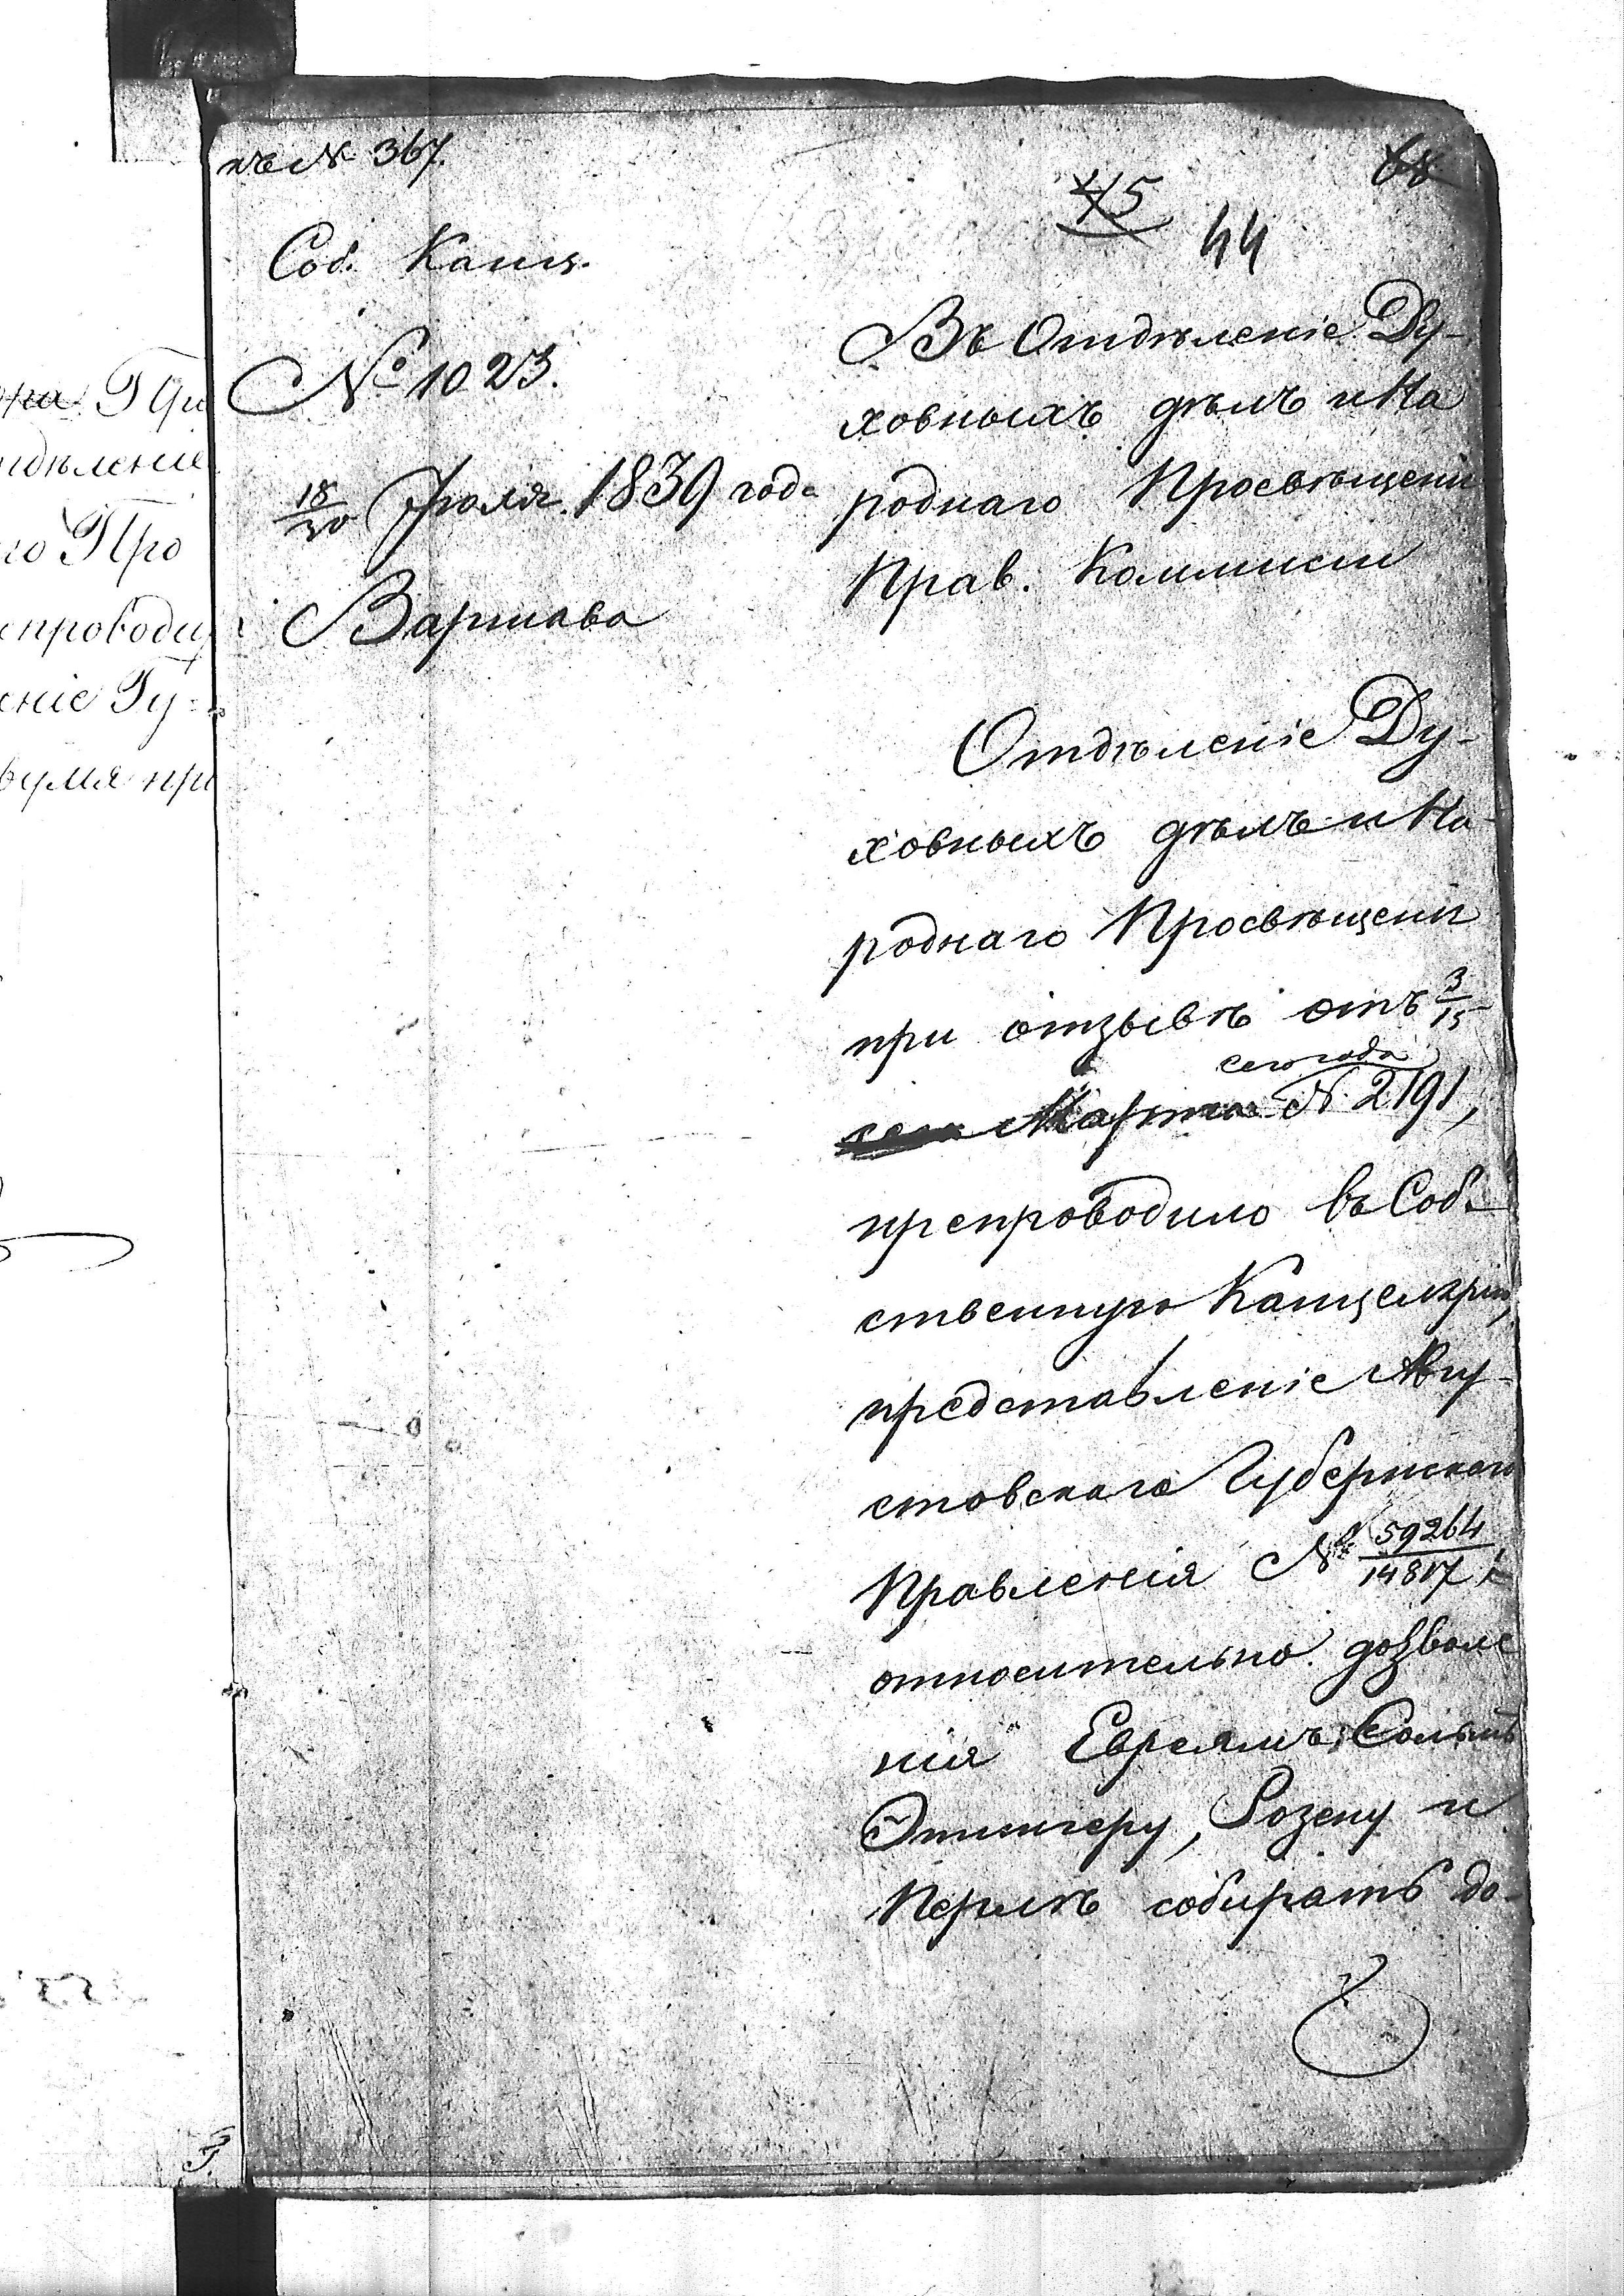 къ № 367.
45
44
Соб. Канц.
№ 1023.
18/30 Іюля 1839 года
Варшава
Въ Отдѣленіе Ду-
ховныхъ дѣлъ и На
роднаго Просвѣщенія
Прав. Коммисіи
Отдѣленіе Ду-
ховныхъ дѣлъ и На-
роднаго Просвѣщенія
при отзывѣ отъ 3/15
сего года
Марта № 2191,
препроводило въ Соб-
ственную Канцелярію,
представленіе Авгу-
стовскаго Губернскаго
Правленія № 59264/14817
относительно дозволе
нія Евреямъ
Розену и
Перлѣ собирать до-
дѣленіе
го Про
епроводи
еніе Гу-
вумя при